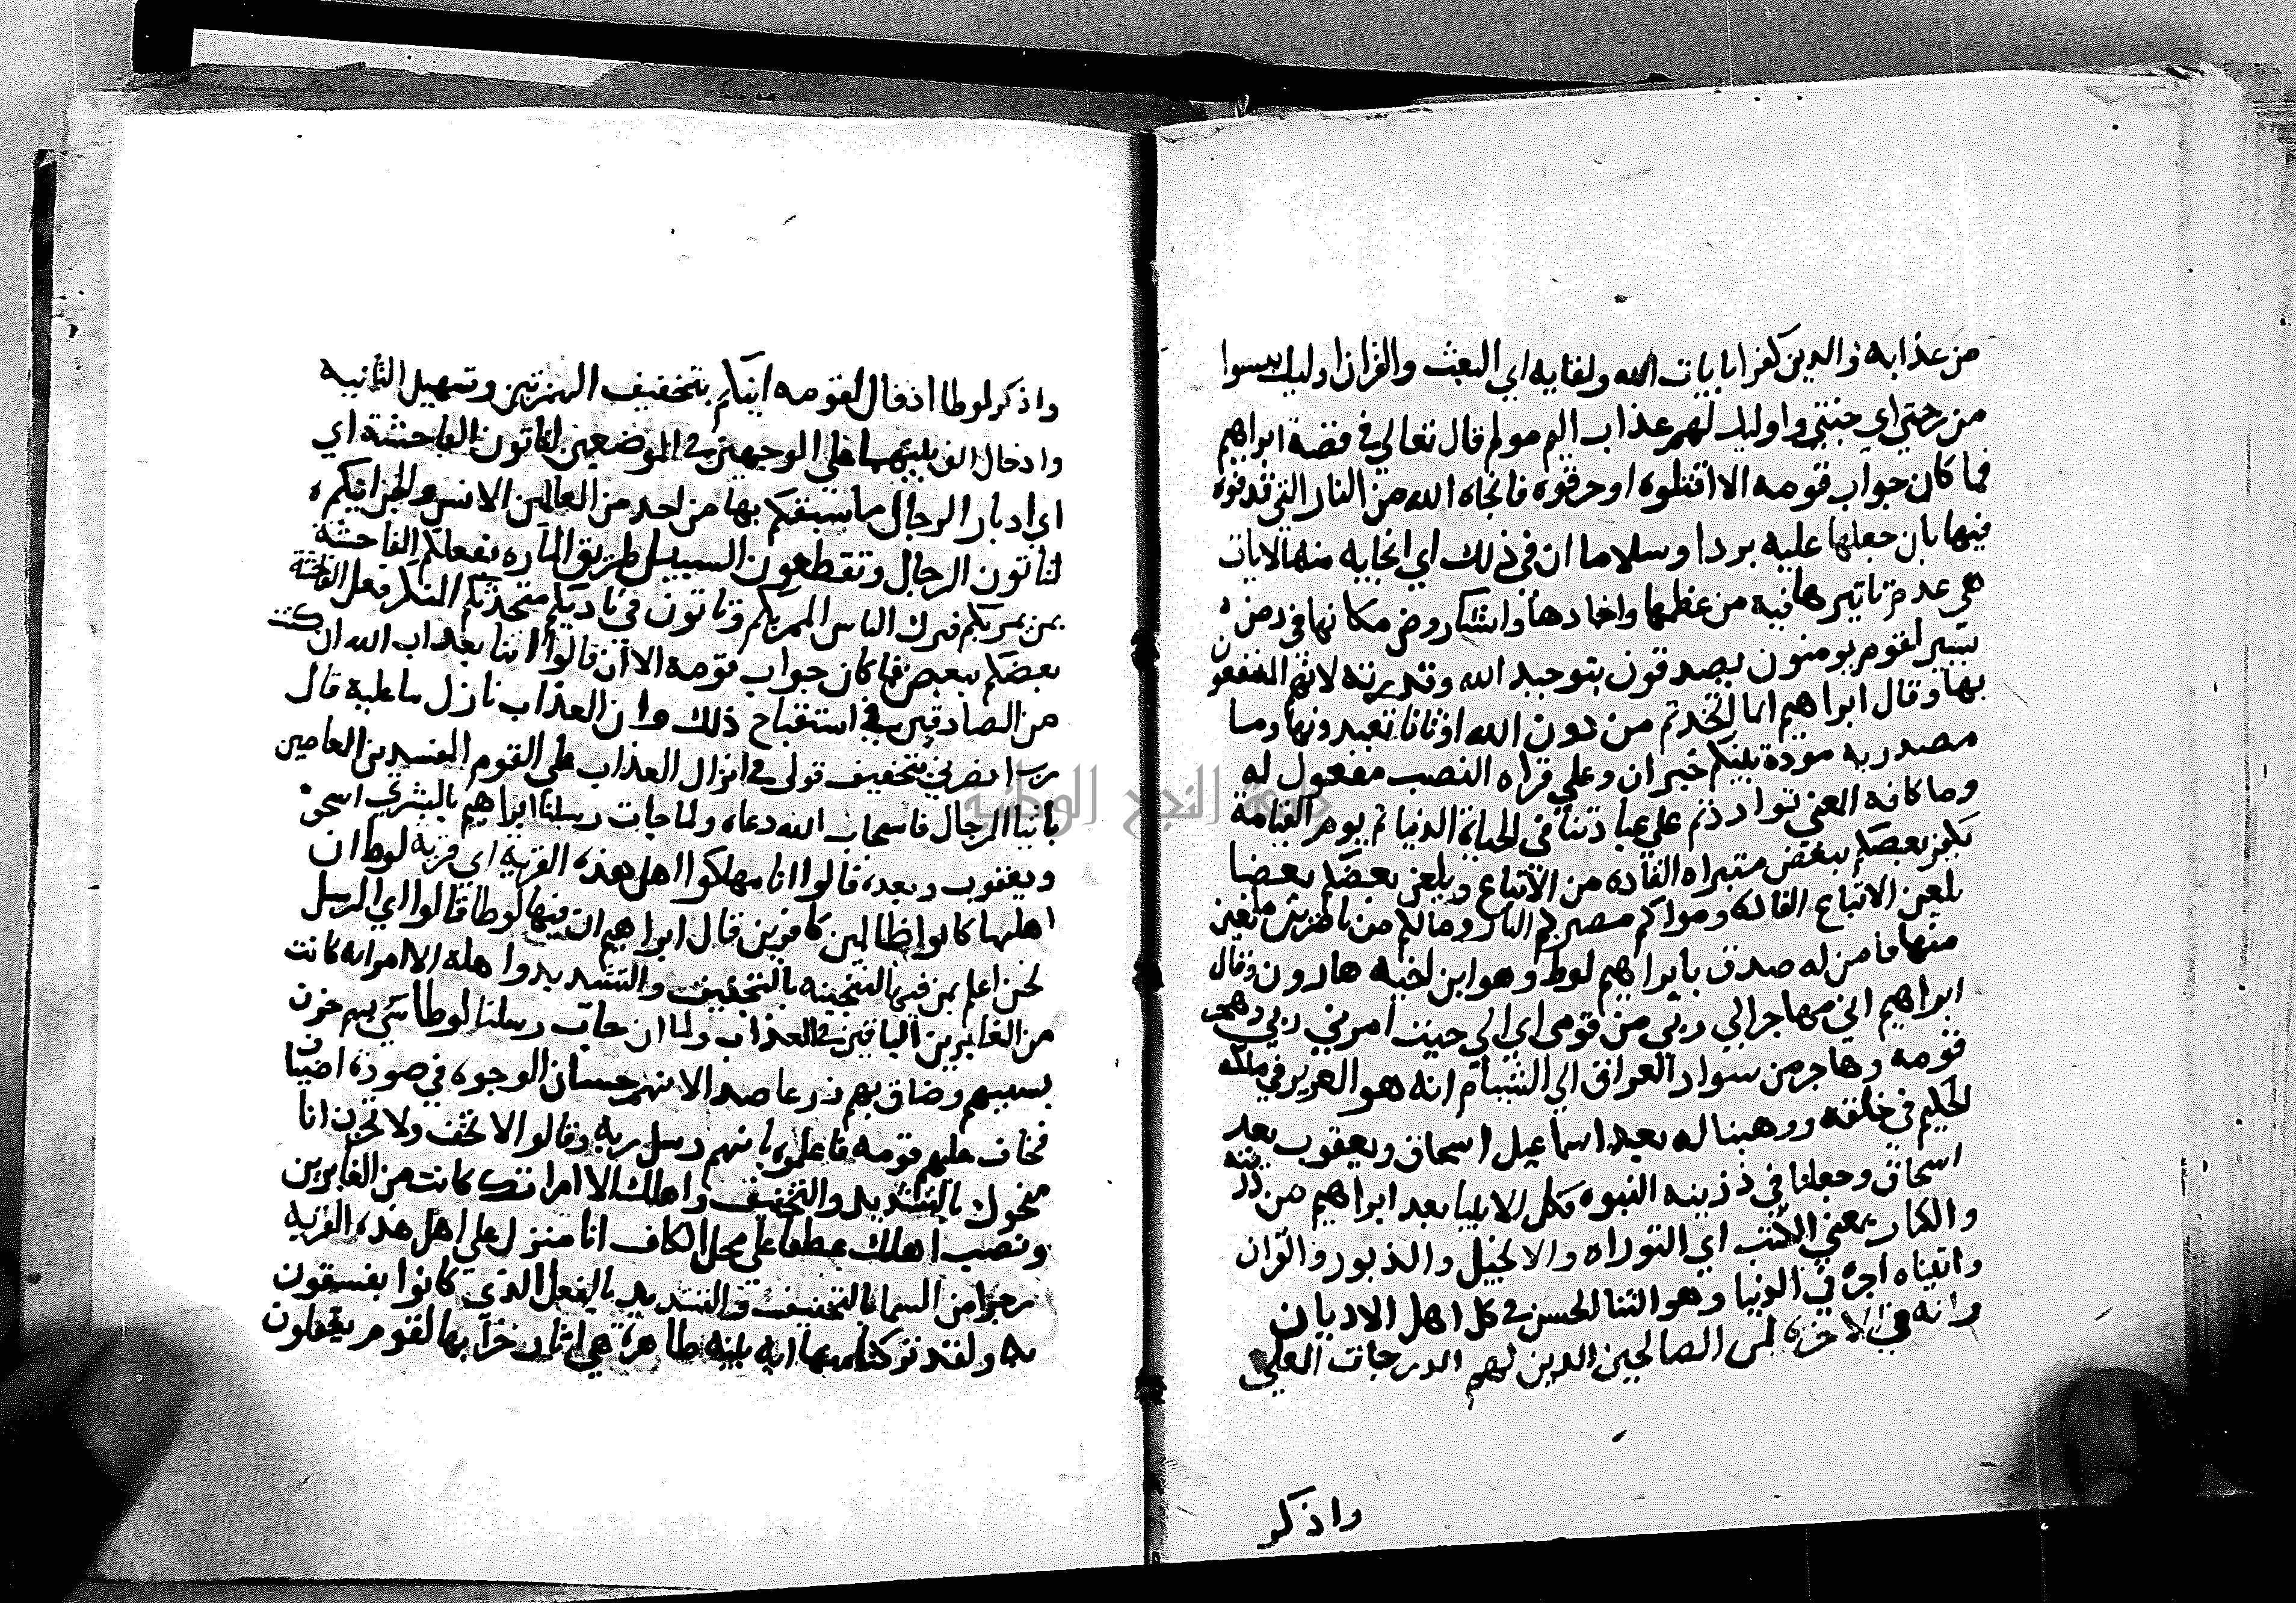 من عذابه والدين كفروا بايات الله ولقايه اي البعث والقران اوليك يىسوا
من رحمتي اي جنتي واوليك لهم عذاب اليم مولم قال تعالي في قصة ابراهيم
فما كان جواب قومه الا اقتلوه او حرقوه فانجاه الله من النار التي قدفوه
فيها بان جعلها عليه بردا وسلاما ان في ذلك اي انجايه منها لايات
هي عدم تاثيرها فيه من عظمها واخمادها وانشا روض مكانها في زمن
يسير لقوم يومنون يصدقون بتوحيد الله وقدرته لانهم المنتفعون
بها وقال ابراهيم انما اتخدتم من دون الله اوثانا تعبدونها وما
مصدريه مودة بينكم خبر ان وعلي قراه النصب مفعول له
وما كافه المعني تواددتم علي عبادتها في الحياة الدنيا ثم يوم القيامة
يكفر بعضكم ببعض يتبراه القاده من الاتباع ويلعن بعضكم بعضا
يلعن الاتباع القاده وماواكم مصيركم النار ومالكم من ناصرين مانعين
منها فامن له صدق بابراهيم لوط وهو ابن اخيه هارون وقال
ابراهيم اني مهاجر الي ربي من قومي اي الي حيث امرني ربي وهجر
قومه وهاجر من سواد العراق الي الشام انه هو العزيز في ملكه
الحكيم في خلقه ووهبنا له بعد اسماعيل اسحاق ويعقوب بعد
اسحاق وجعلنا في ذريته النبوه فكل الانبيا بعد ابراهيم من ذريته
والكتاب بمعني الكتب اي التوراه والانجيل والذبور والقران
واتيناه اجره في الدنيا وهو الثنا الحسن في كل اهل الاديان
وانه في الاخره لمن الصالحين الدين لهم الدرجات العلي
واذكر
واذكر لوطا اذ قال لقومه اينكم بتخفيف الهمزتين وتسهيل الثانيه
وادخال الف بينهما علي الوجهين في الموضعين لتاتون الفاحشة اي
اي ادبار الرجال ما سبقكم بها من احد من العالمين الانس والجن اينكم
لتاتون الرجال وتقطعون السبيل طريق الماره بفعلكم الفاحشة
بمن يمر بكم فترك الناس الممر بكم وتاتون في ناديكم متحدثكم المنكر فعل الفاحشة
بعضكم ببعض فما كان جواب قومه الا ان قالوا ائتنا بعداب الله ان كنت
من الصادقين في استقباح ذلك وان العذاب نازل بفاعليه قال
رب انصرني بتحقيف قولي في انزال العذاب علي القوم المفسدين العاصين
باتيا الرجال فاستجاب الله دعاه ولما جات رسلنا ابراهيم بالبشري اسحق
ويعقوب وبعده قالوا انا مهلكوا اهل هده القرية اي قرية لوط ان
اهلها كانوا ظالمين كافرين قال ابراهيم ان فيها لوطا قالوا اي الرسل
نحن اعلم بمن فيها لننجينه بالتخفيف والتشديد واهله الا امراته كانت
من الغابرين الباقين في العذاب ولما ان جات رسلنا لوطا سي بهم حزن
بسببهم وضاق بهم ذرعا صدرا لانهم حسان الوجوه في صورة اضياف
فخاف عليهم قومه فاعلموه بانهم رسل ربه وقالوا لا تخف ولا تحزن انا
منجوك بالتشديد والتخفيف واهلك الا امراتك كانت من الغابرين
ونصب اهلك عطفا علي محل الكاف انا منزلون علي اهل هده القرية
رجزا من السما بالتخفيف والتشديد بالفعل الذي كانوا يفسقون
به ولقد تركنا منها ايه بينه ظاهرة هي اثار خرابها لقوم يعقلون